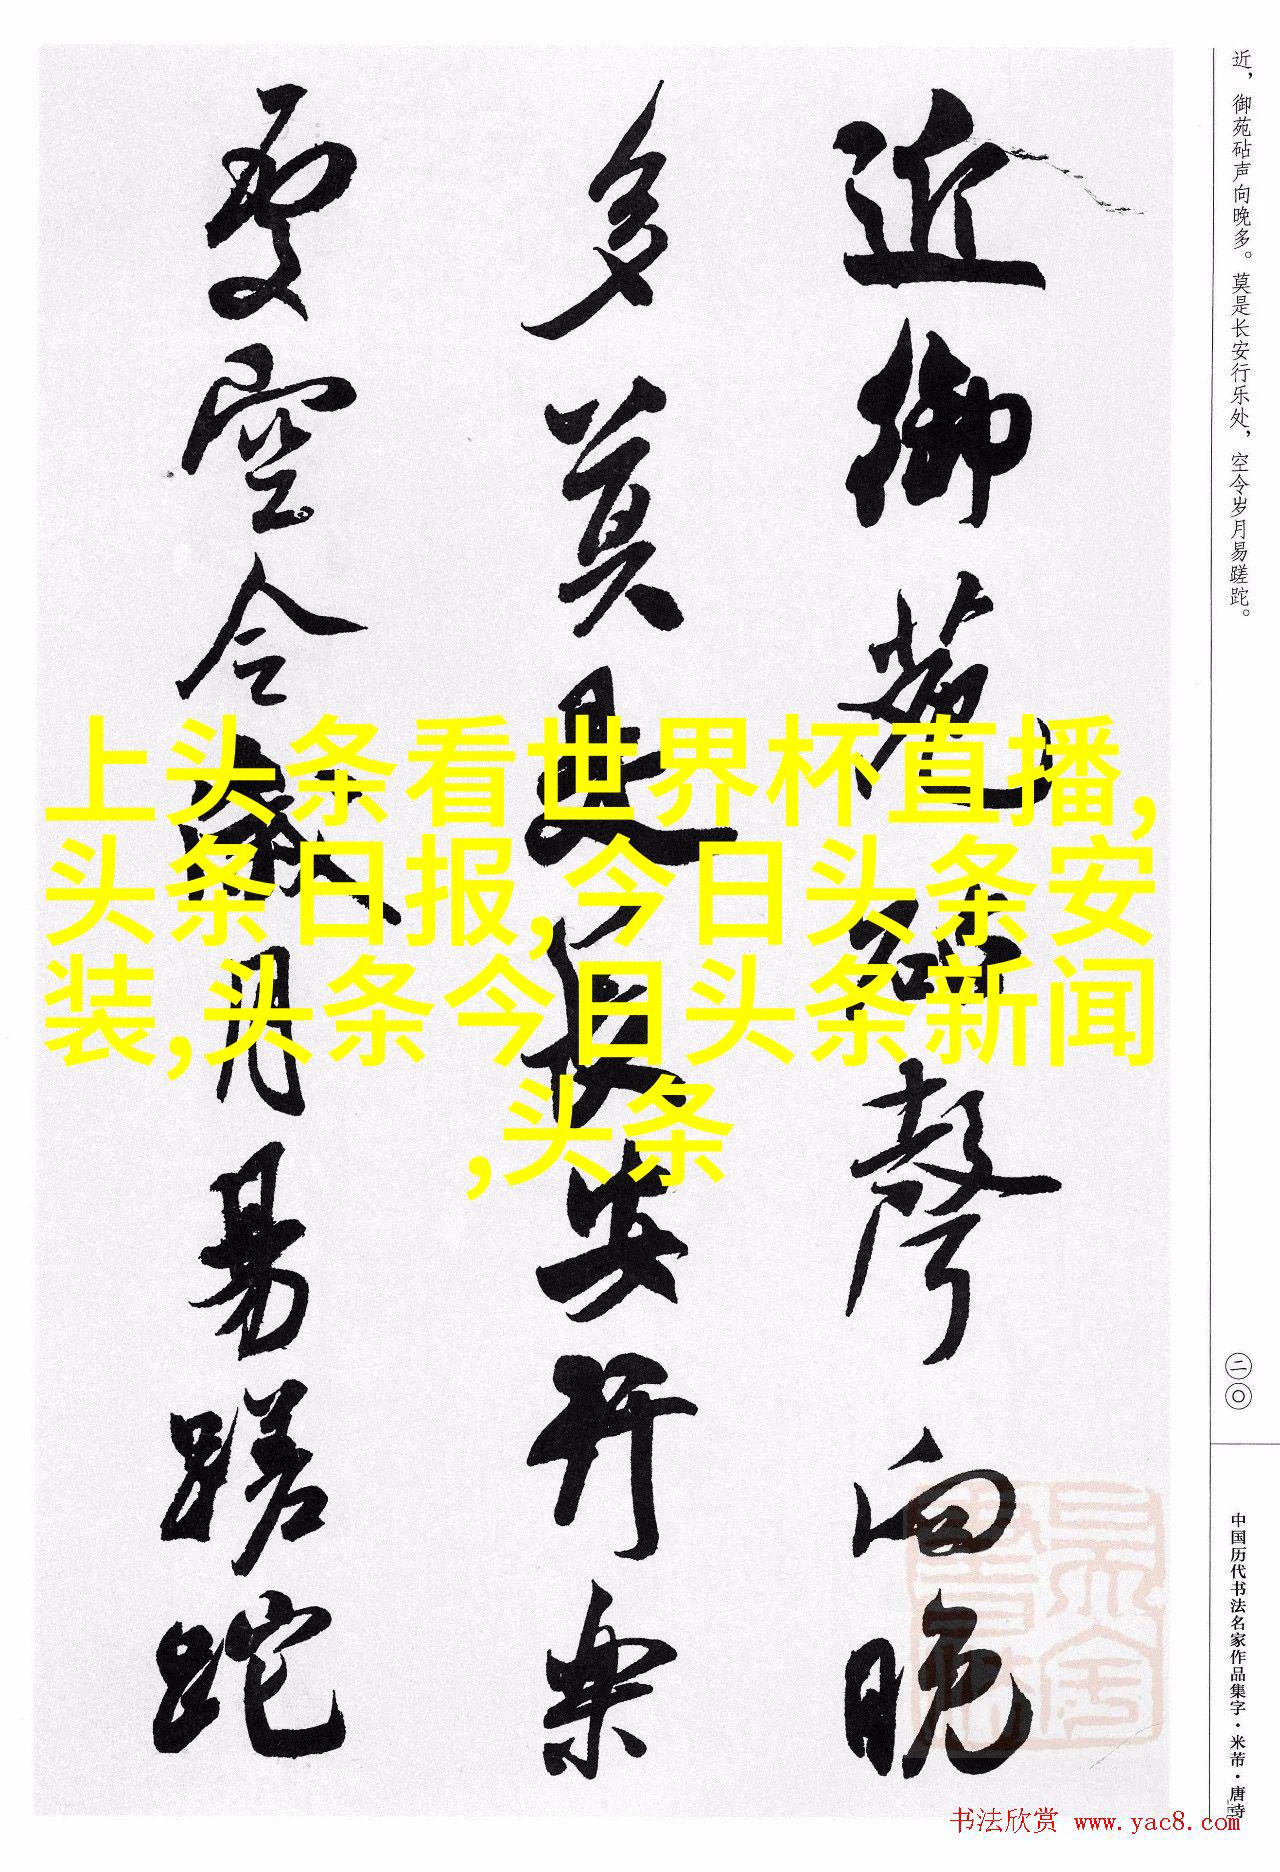 近御苑砧聲向晚
多莫是长安行樂
處空令歲月易蹉跎
上头条看世界杯直播,
头条日报,今日头条安
装,头条 今日头条新闻
,头条
近，御苑砧声向晚多。莫是长安行乐处，空令岁月易蹉跎。
二〇
中国历代书法名家作品集字·米芾·唐诗
书法欣赏 www.yac8.com